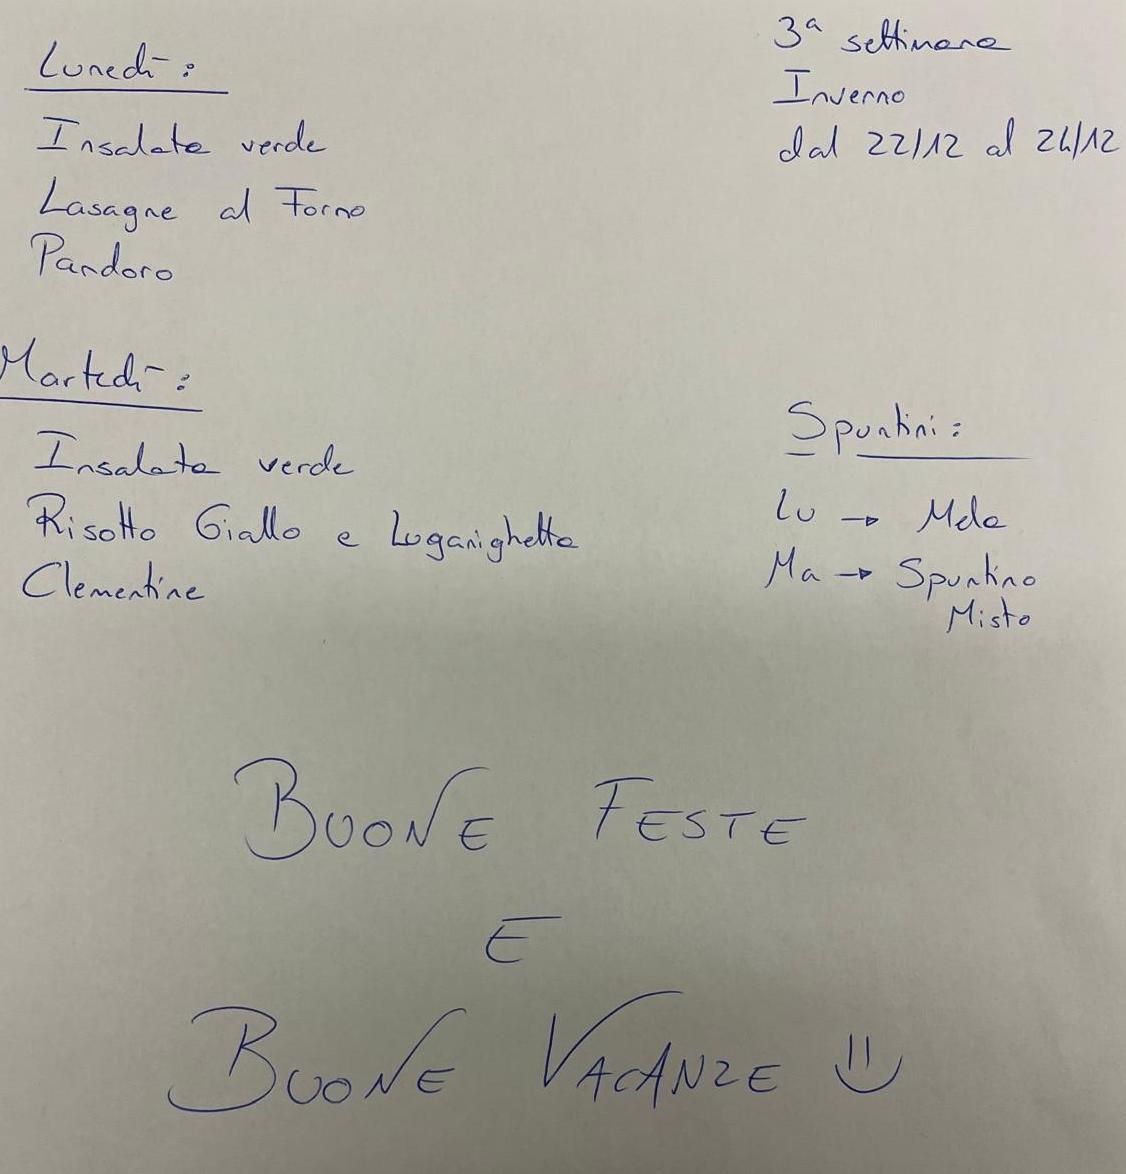 3ª settimana
Inverno
dal 22/12 al 24/12
Lunedì:
Insalata verde
Lasagne al Forno
Pandoro
Martedì:
Insalata verde
Risotto Giallo e Luganighetta
Clementine
Spuntini:
Lu → Mela
Ma → Spuntino
Misto
BUONE FESTE
E
BUONE VACANZE :)